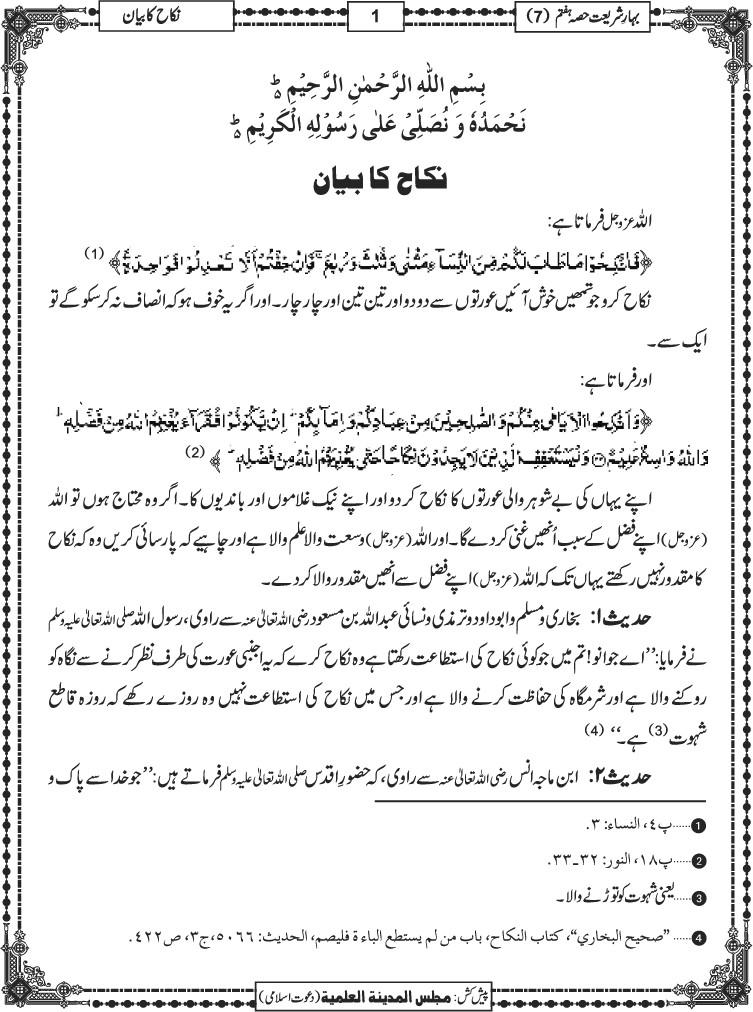 بہارِ شریعت حصہ ہفتم (7)
1
نکاح کا بیان
بِسْمِ اللّٰهِ الرَّحْمٰنِ الرَّحِيْمِ ؕ
نَحْمَدُهٗ وَ نُصَلِّىْ عَلٰى رَسُوْلِهِ الْكَرِيْمِ ؕ
نکاح کا بیان
اللہ عزوجل فرماتا ہے:
﴿فَانْكِحُوْا مَا طَابَ لَكُمْ مِّنَ النِّسَآءِ مَثْنٰى وَثُلٰثَ وَرُبٰعَ ۚ فَاِنْ خِفْتُمْ اَلَّا تَعْدِلُوْا فَوَاحِدَةً ﴾ (1)
نکاح کرو جو تمھیں خوش آئیں عورتوں سے دو دو اور تین تین اور چار چار۔ اور اگر یہ خوف ہو کہ انصاف نہ کر سکو گے تو
ایک سے۔
اور فرماتا ہے:
﴿وَاَنْكِحُوا الْاَيَامٰى مِنْكُمْ وَالصّٰلِحِيْنَ مِنْ عِبَادِكُمْ وَاِمَآىِٕكُمْ ؕ اِنْ يَّكُوْنُوْا فُقَرَآءَ يُغْنِهِمُ اللّٰهُ مِنْ فَضْلِهٖ ؕ
وَاللّٰهُ وَاسِعٌ عَلِيْمٌ ﴿۳۲﴾ وَلْيَسْتَعْفِفِ الَّذِيْنَ لَا يَجِدُوْنَ نِكَاحًا حَتّٰى يُغْنِيَهُمُ اللّٰهُ مِنْ فَضْلِهٖ ؕ ﴾ (2)
اپنے یہاں کی بے شوہر والی عورتوں کا نکاح کر دو اور اپنے نیک غلاموں اور باندیوں کا۔ اگر وہ محتاج ہوں تو اللہ
(عزوجل) اپنے فضل کے سبب اُنھیں غنی کر دے گا۔ اور اللہ (عزوجل) وسعت والا علم والا ہے اور چاہیے کہ پارسائی کریں وہ کہ نکاح
کا مقدور نہیں رکھتے یہاں تک کہ اللہ (عزوجل) اپنے فضل سے انھیں مقدور والا کر دے۔
حدیث ۱: بخاری و مسلم و ابوداود و ترمذی و نسائی عبداللہ بن مسعود رضی اللہ تعالیٰ عنہ سے راوی، رسول اللہ صلی اللہ تعالیٰ علیہ وسلم
نے فرمایا: ’’اے جوانو! تم میں جو کوئی نکاح کی استطاعت رکھتا ہے وہ نکاح کرے کہ یہ اجنبی عورت کی طرف نظر کرنے سے نگاہ کو
روکنے والا ہے اور شرمگاہ کی حفاظت کرنے والا ہے اور جس میں نکاح کی استطاعت نہیں وہ روزے رکھے کہ روزہ قاطع
شہوت (3) ہے۔‘‘ (4)
حدیث ۲: ابن ماجہ انس رضی اللہ تعالیٰ عنہ سے راوی، کہ حضورِ اقدس صلی اللہ تعالیٰ علیہ وسلم فرماتے ہیں: ’’جو خدا سے پاک و
1......پ٤، النساء: ٣.
2......پ١٨، النور: ٣٢ـ٣٣.
3......یعنی شہوت کو توڑنے والا۔
4......"صحيح البخاري"، كتاب النكاح، باب من لم يستطع الباءة فليصم، الحديث: ٥٠٦٦، ج٣، ص٤٢٢.
پیش کش: مجلس المدينة العلمية (دعوت اسلامی)